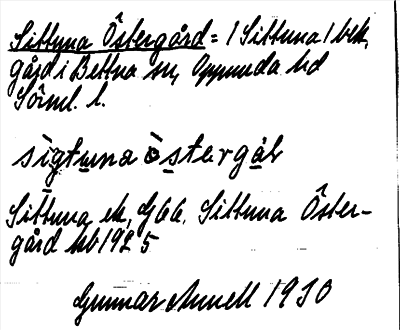 Sittuna Östergård = 1 Sittuna 1 bek,
gård i Bettna sn, Oppunda hd
Söml. l.
sìgtuna òstergåḷ
Sittuna ek, G66. Sittuna Öster-
gård kb 1925
Gunnar Annell 1930